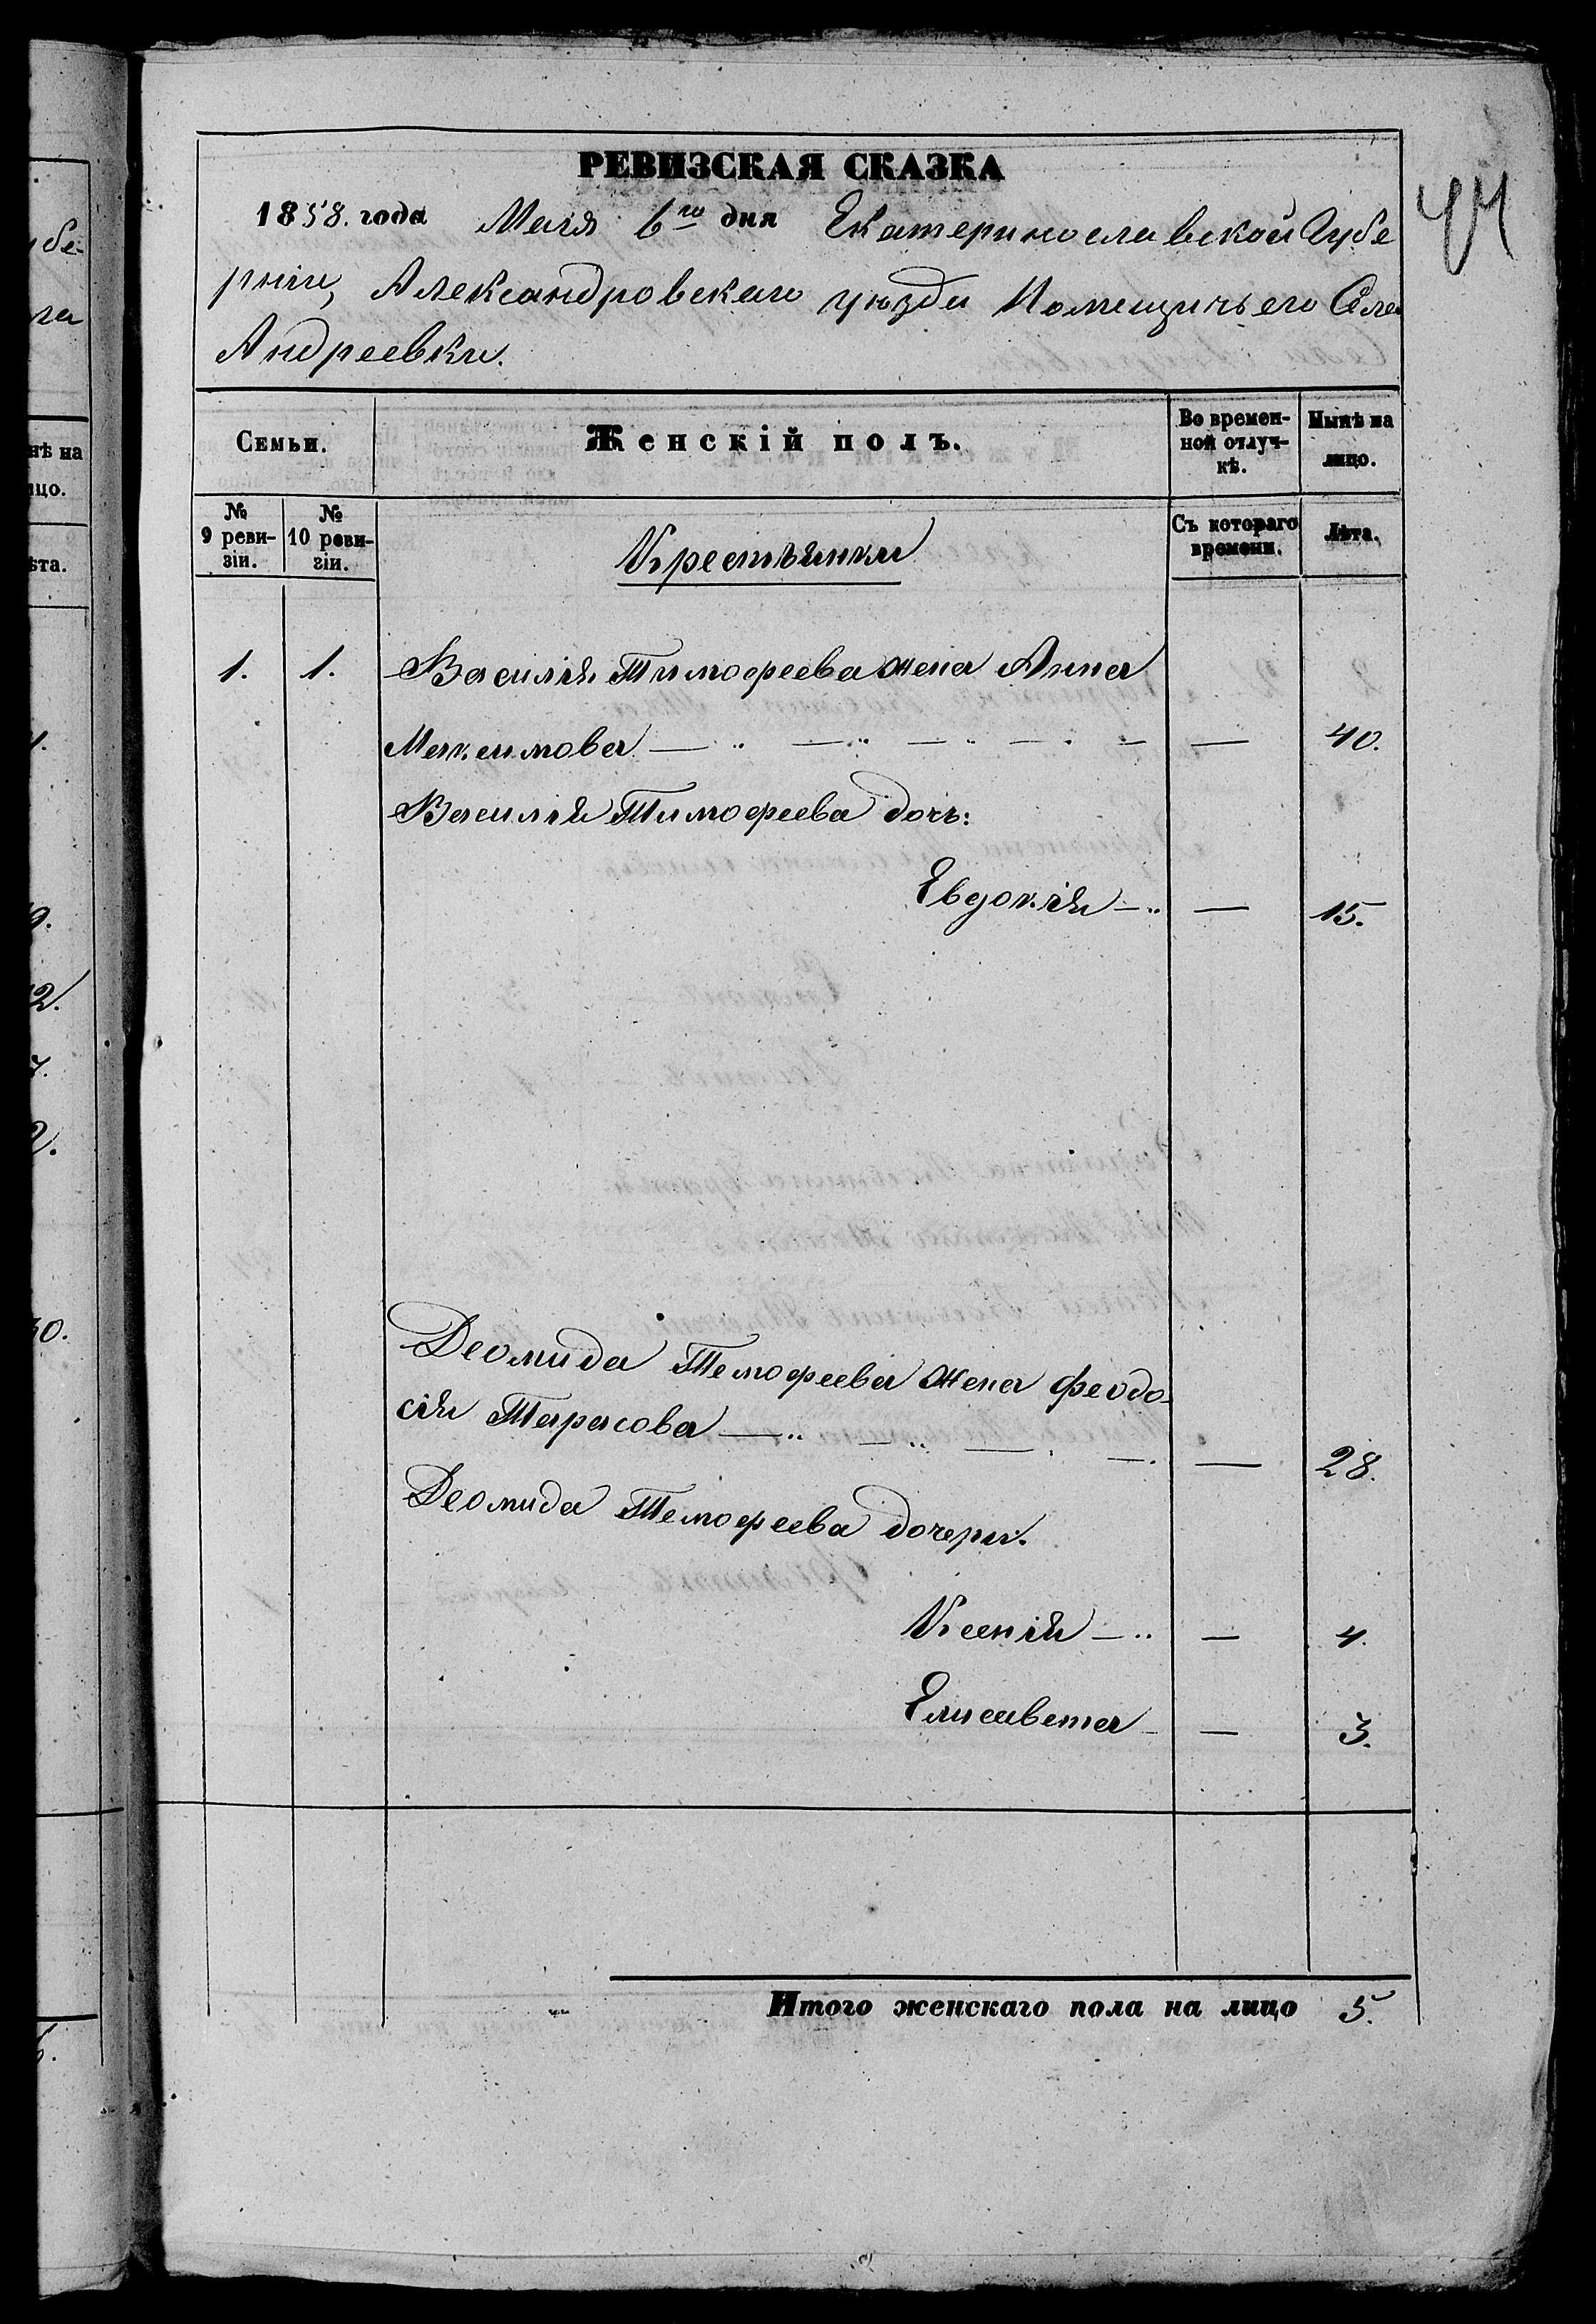 РЕВИЗСКАЯ СКАЗКА
1858. года Мая 6го дня Екатеринославской Губе
рніи, Александровскаго уюзда Помещичьего Села
Андреевки.
44
Семьи.
Женскій полъ.
Во времен-
ной отлуч-
кѣ.
Нынѣ на
лицо.
№
9 реви-
зіи.
№
10 реви-
зіи.
Крестьянки
Съ котораго
времени.
Лѣта.
1. 1. Василія Тимофеева жена Анна
Максимова — — 40.
Василія Тимофеева дочь:
Евдокія — — 15.
Деомида Темофеева жена Феодо-
сія Тарасова — — 28.
Деомида Темофеева дочери:
Ксенія — — 4.
Елисавета — — 3.
Итого женскаго пола на лицо 5.